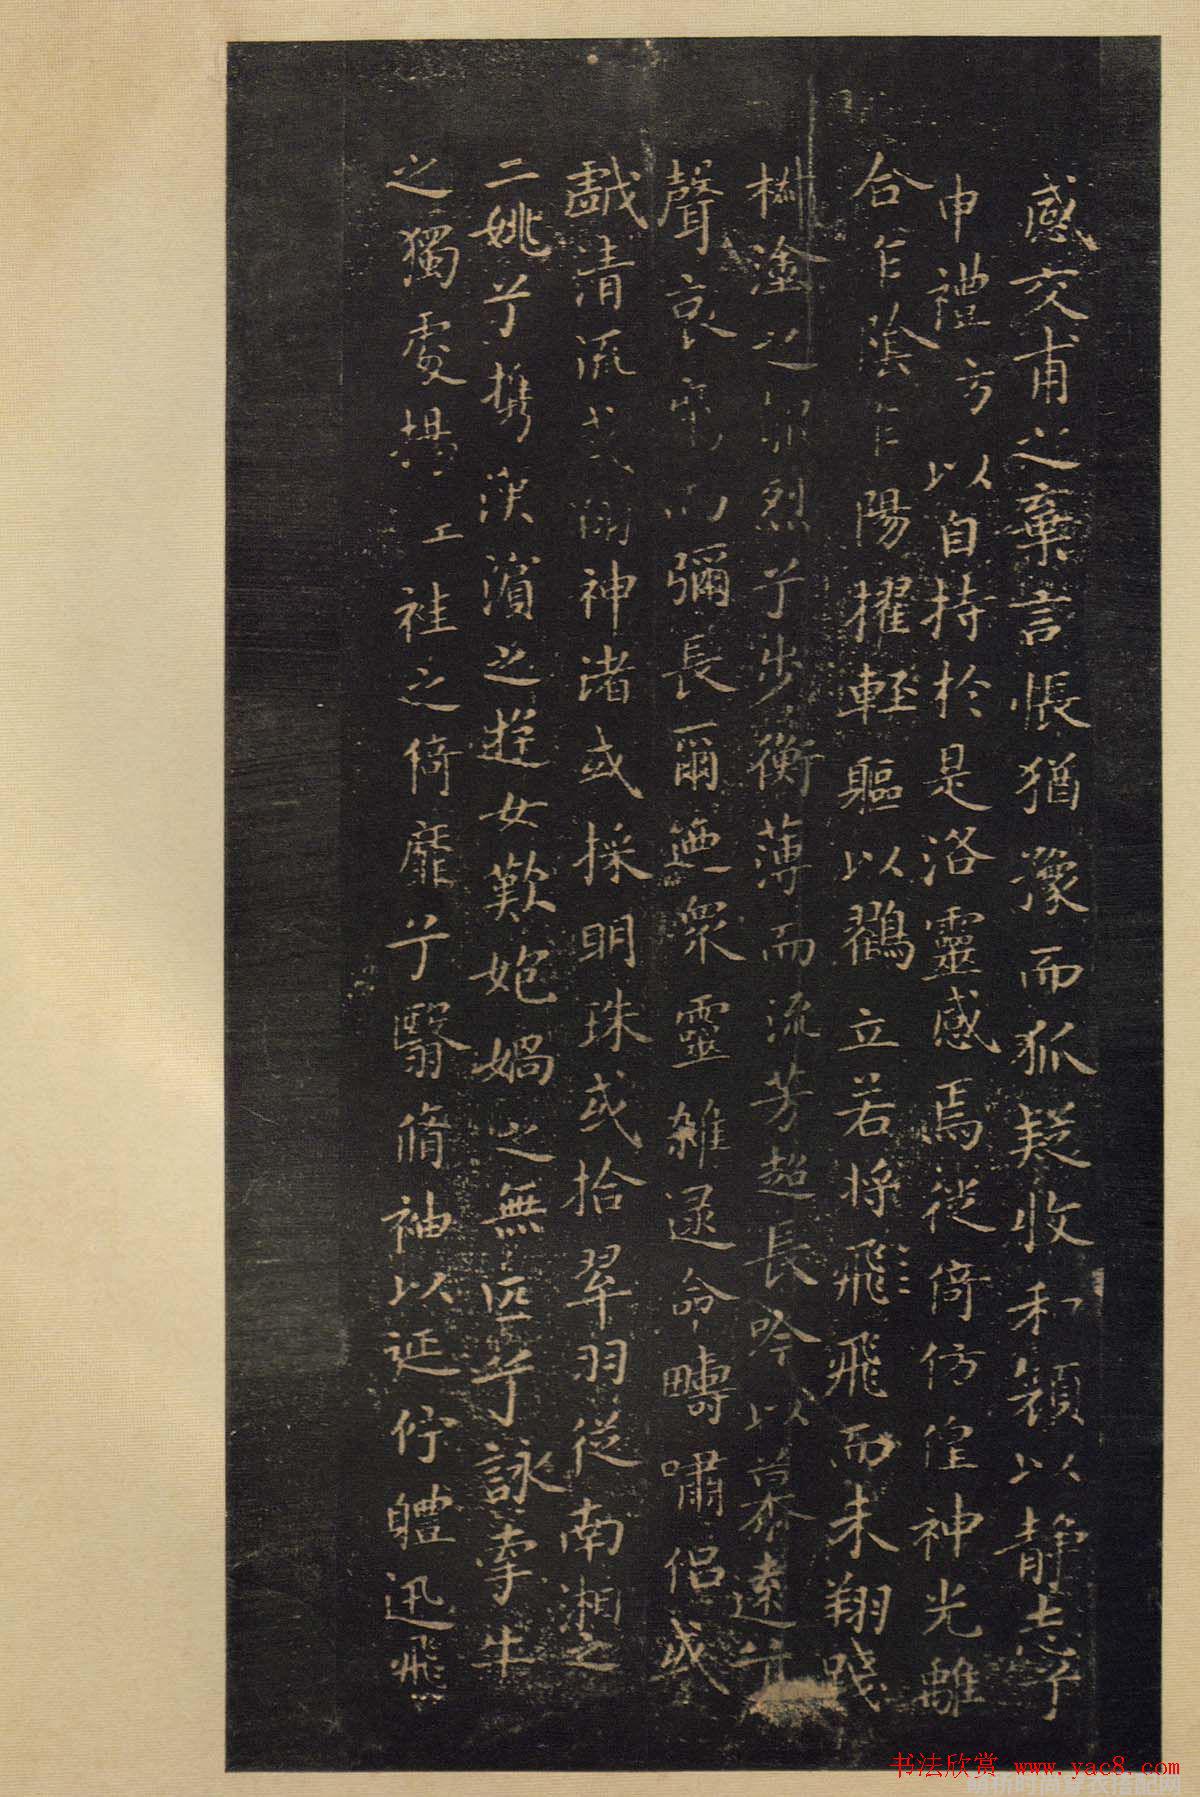 感交甫之棄言悵猶豫而狐疑收和顏以靜志兮
申禮防以自持於是洛靈感焉徙倚仿偟神光離
合乍陰乍陽擢輕軀以鶴立若將飛飛而未翔踐
椒塗之郁烈兮步蘅薄而流芳超長吟以慕遠兮
聲哀厲而彌長爾乃眾靈雜遝命疇嘯侶或
戲清流或翔神渚或採明珠或拾翠羽從南湘之
二姚兮攜漢濱之遊女歎匏媧之無匹兮詠牽牛
之獨處揚之袿之倚靡兮翳脩袖以延佇體迅飛
书法欣赏 www.yac8.com